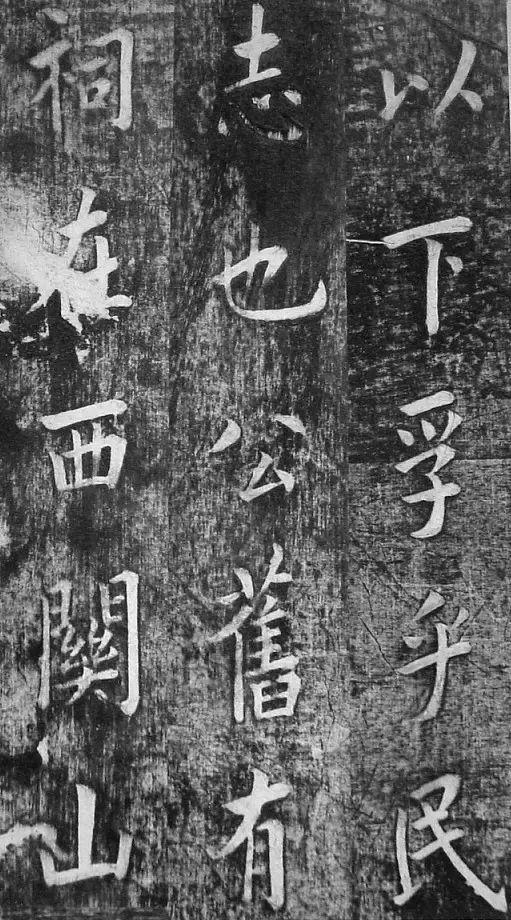 以下孚乎民
志也公舊有
祠在西關山